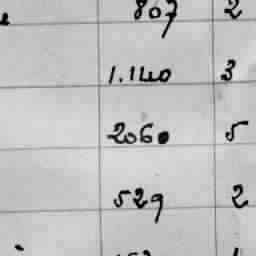 807 2
1.140 3
2060 5
529 2